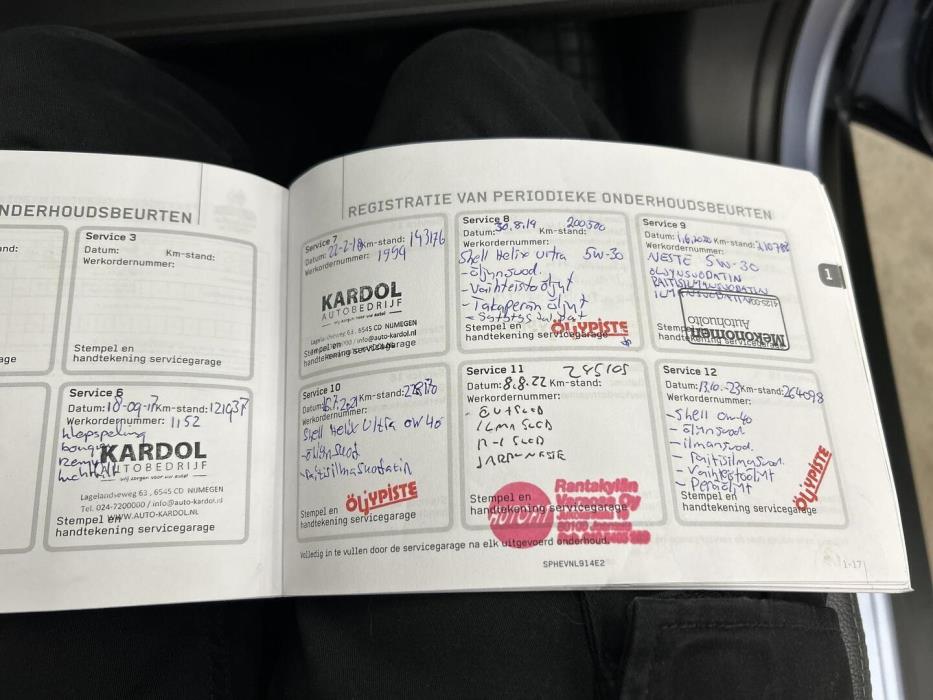 NDERHOUDSBEURTEN
Service 3
Datum: Km-stand:
Werkordernummer:
Stempel en
handtekening servicegarage
Service 6
Datum: 18-09-17 Km-stand: 121937
Werkordernummer: 1152
klepspeling
KARDOL
AUTOBEDRIJF
wij zorgen voor uw auto!
Lagelandseweg 63, 6545 CD NIJMEGEN
Tel. 024-7200000 / info@auto-kardol.nl
WWW.AUTO-KARDOL.NL
Stempel en
handtekening servicegarage
REGISTRATIE VAN PERIODIEKE ONDERHOUDSBEURTEN
Service 7
Datum: 22-2-18 Km-stand: 143176
Werkordernummer: 1994
KARDOL
AUTOBEDRIJF
wij zorgen voor uw auto!
Lagelandseweg 63, 6545 CD NIJMEGEN
Stempel en
handtekening servicegarage
Service 8
Datum: 30.8.19 Km-stand: 200300
Werkordernummer:
Shell Helix Ultra 5W-30
- öljynsuod.
- Vaihteistoöljyt
- Takaperän öljyt
Stempel en
handtekening servicegarage
ÖLJYPISTE
Service 9
Datum: 1.6.2020 Km-stand: 210788
Werkordernummer:
NESTE 5W-30
ÖLJYNSUODATIN
RAITISILMANSUODATIN
ILMANSUODATIN
Mekonomen
Autohuolto
Stempel en
handtekening servicegarage
1
Service 10
Datum: .7.2021 Km-stand:
Werkordernummer:
Shell Helix Ultra 0W40
- öljynsuod
- raitisilmasuodatin
Stempel en
handtekening servicegarage
ÖLJYPISTE
Service 11 245105
Datum: 8.8.22 Km-stand:
Werkordernummer:
- ÖLJY SUOD
ILMA SUOD
R-I SUOD
JARRUNESTE
Stempel en
handtekening servicegarage
AUTOFIT
Rantakylän
Varaosa Oy
Service 12
Datum: 13.10.-23 Km-stand: 264098
Werkordernummer:
- Shell 0W40
- öljynsuod.
- ilmansuod.
- Raitisilmasuod.
- Vaihteistoöljyt
- Peräöljyt
Stempel en
handtekening servicegarage
ÖLJYPISTE
Volledig in te vullen door de servicegarage na elk uitgevoerd onderhoud.
SPHEVNL914E2
1-17